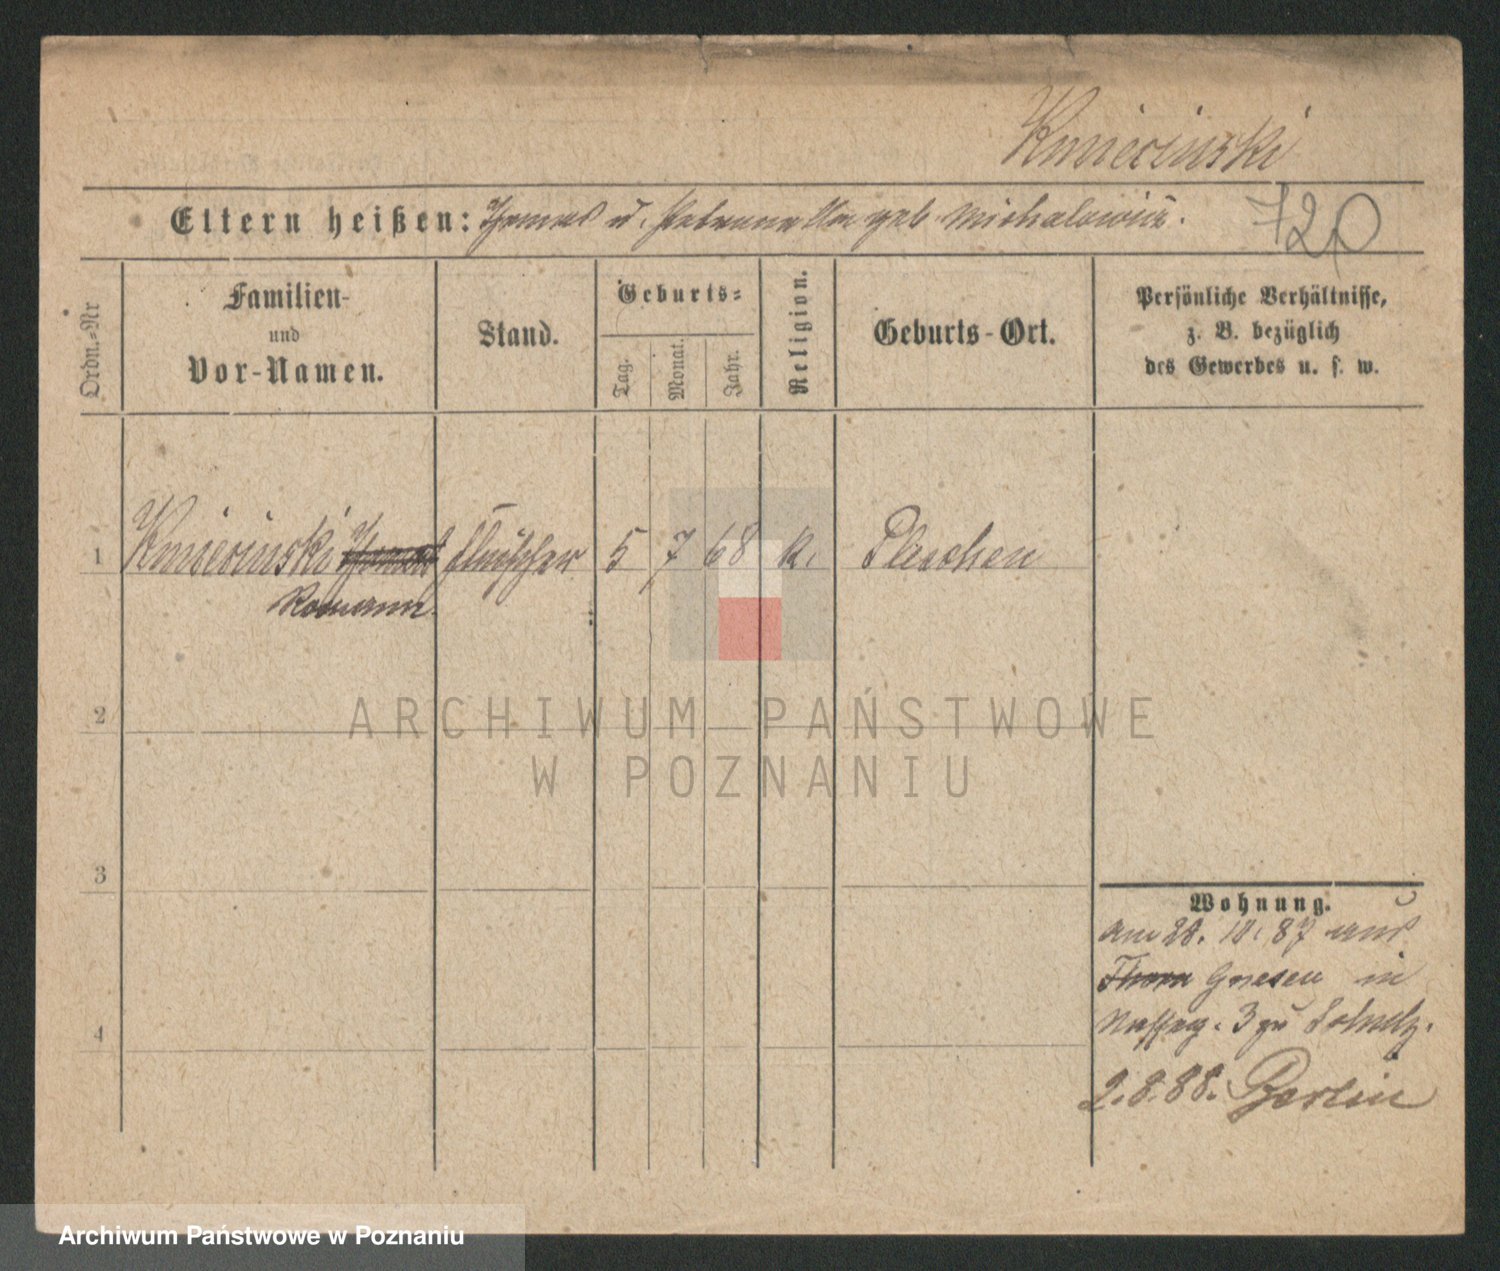 Kmiecinski
Eltern heißen: Thomas u. Petronella geb. Michalowicz.
720
Ordn.-Nr
Familien-
und
Vor-Namen.
Stand.
Geburts-
Tag.
Monat.
Jahr.
Religion.
Geburts-Ort.
Persönliche Verhältnisse,
z. B. bezüglich
des Gewerbes u. s. w.
1 Kmiecinski Thomas Fleischer 5 7 68 k. Pleschen
Romann.
2
3
4
Wohnung.
am 28. 10. 87 aus
Thorn Gnesen in
3 zu
2.8.88. Berlin
ARCHIWUM PAŃSTWOWE
W POZNANIU
Archiwum Państwowe w Poznaniu